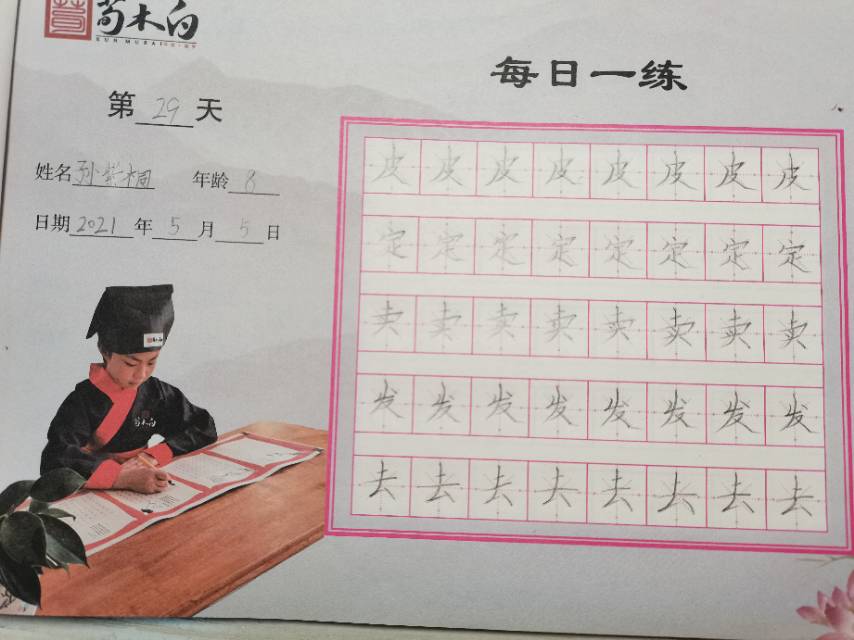 荀木白
XUN MUBAI
每日一练
第 29 天
姓名 孙 桐 年龄 8
日期 2021 年 5 月 5 日
皮皮皮皮皮皮皮皮
定定定定定定定定
卖卖卖卖卖卖卖卖
发发发发发发发发
去去去去去去去去
荀木白